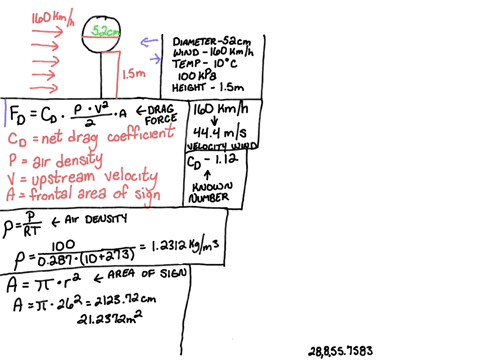 160 Km/h
52cm
1.5m
DIAMETER-52cm
WIND - 160 Km/h
TEMP - 10°C
100 KPa
HEIGHT - 1.5m
F_D = C_D · P · V² / 2 · A ← DRAG FORCE
C_D = net drag coefficient
P = air density
V = upstream velocity
A = frontal area of sign
160 Km/h
↓
44.4 m/s
VELOCITY WIND
C_D - 1.12
↑
KNOWN
NUMBER
ρ = P / RT ← AIR DENSITY
ρ = 100 / 0.287·(10+273) = 1.2312 Kg/m³
A = π · r² ← AREA OF SIGN
A = π · 26² = 2123.72cm
21.2372m²
28,8,55.7583